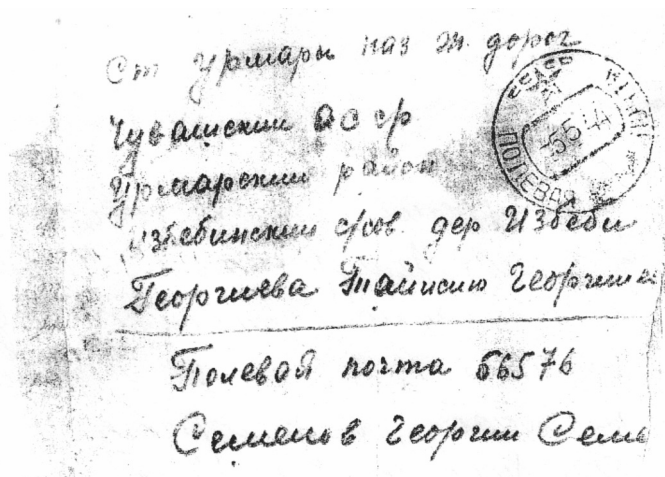 Ст Урмары каз ж. дорог
Чувашский АССР
Урмарский район
избебинский с/сов. дер Избеби
Георгиева Тайисию Георгие
Полевая почта 66576
Семенов Георгий Семе
ПОЛЕВАЯ
-5 5 44